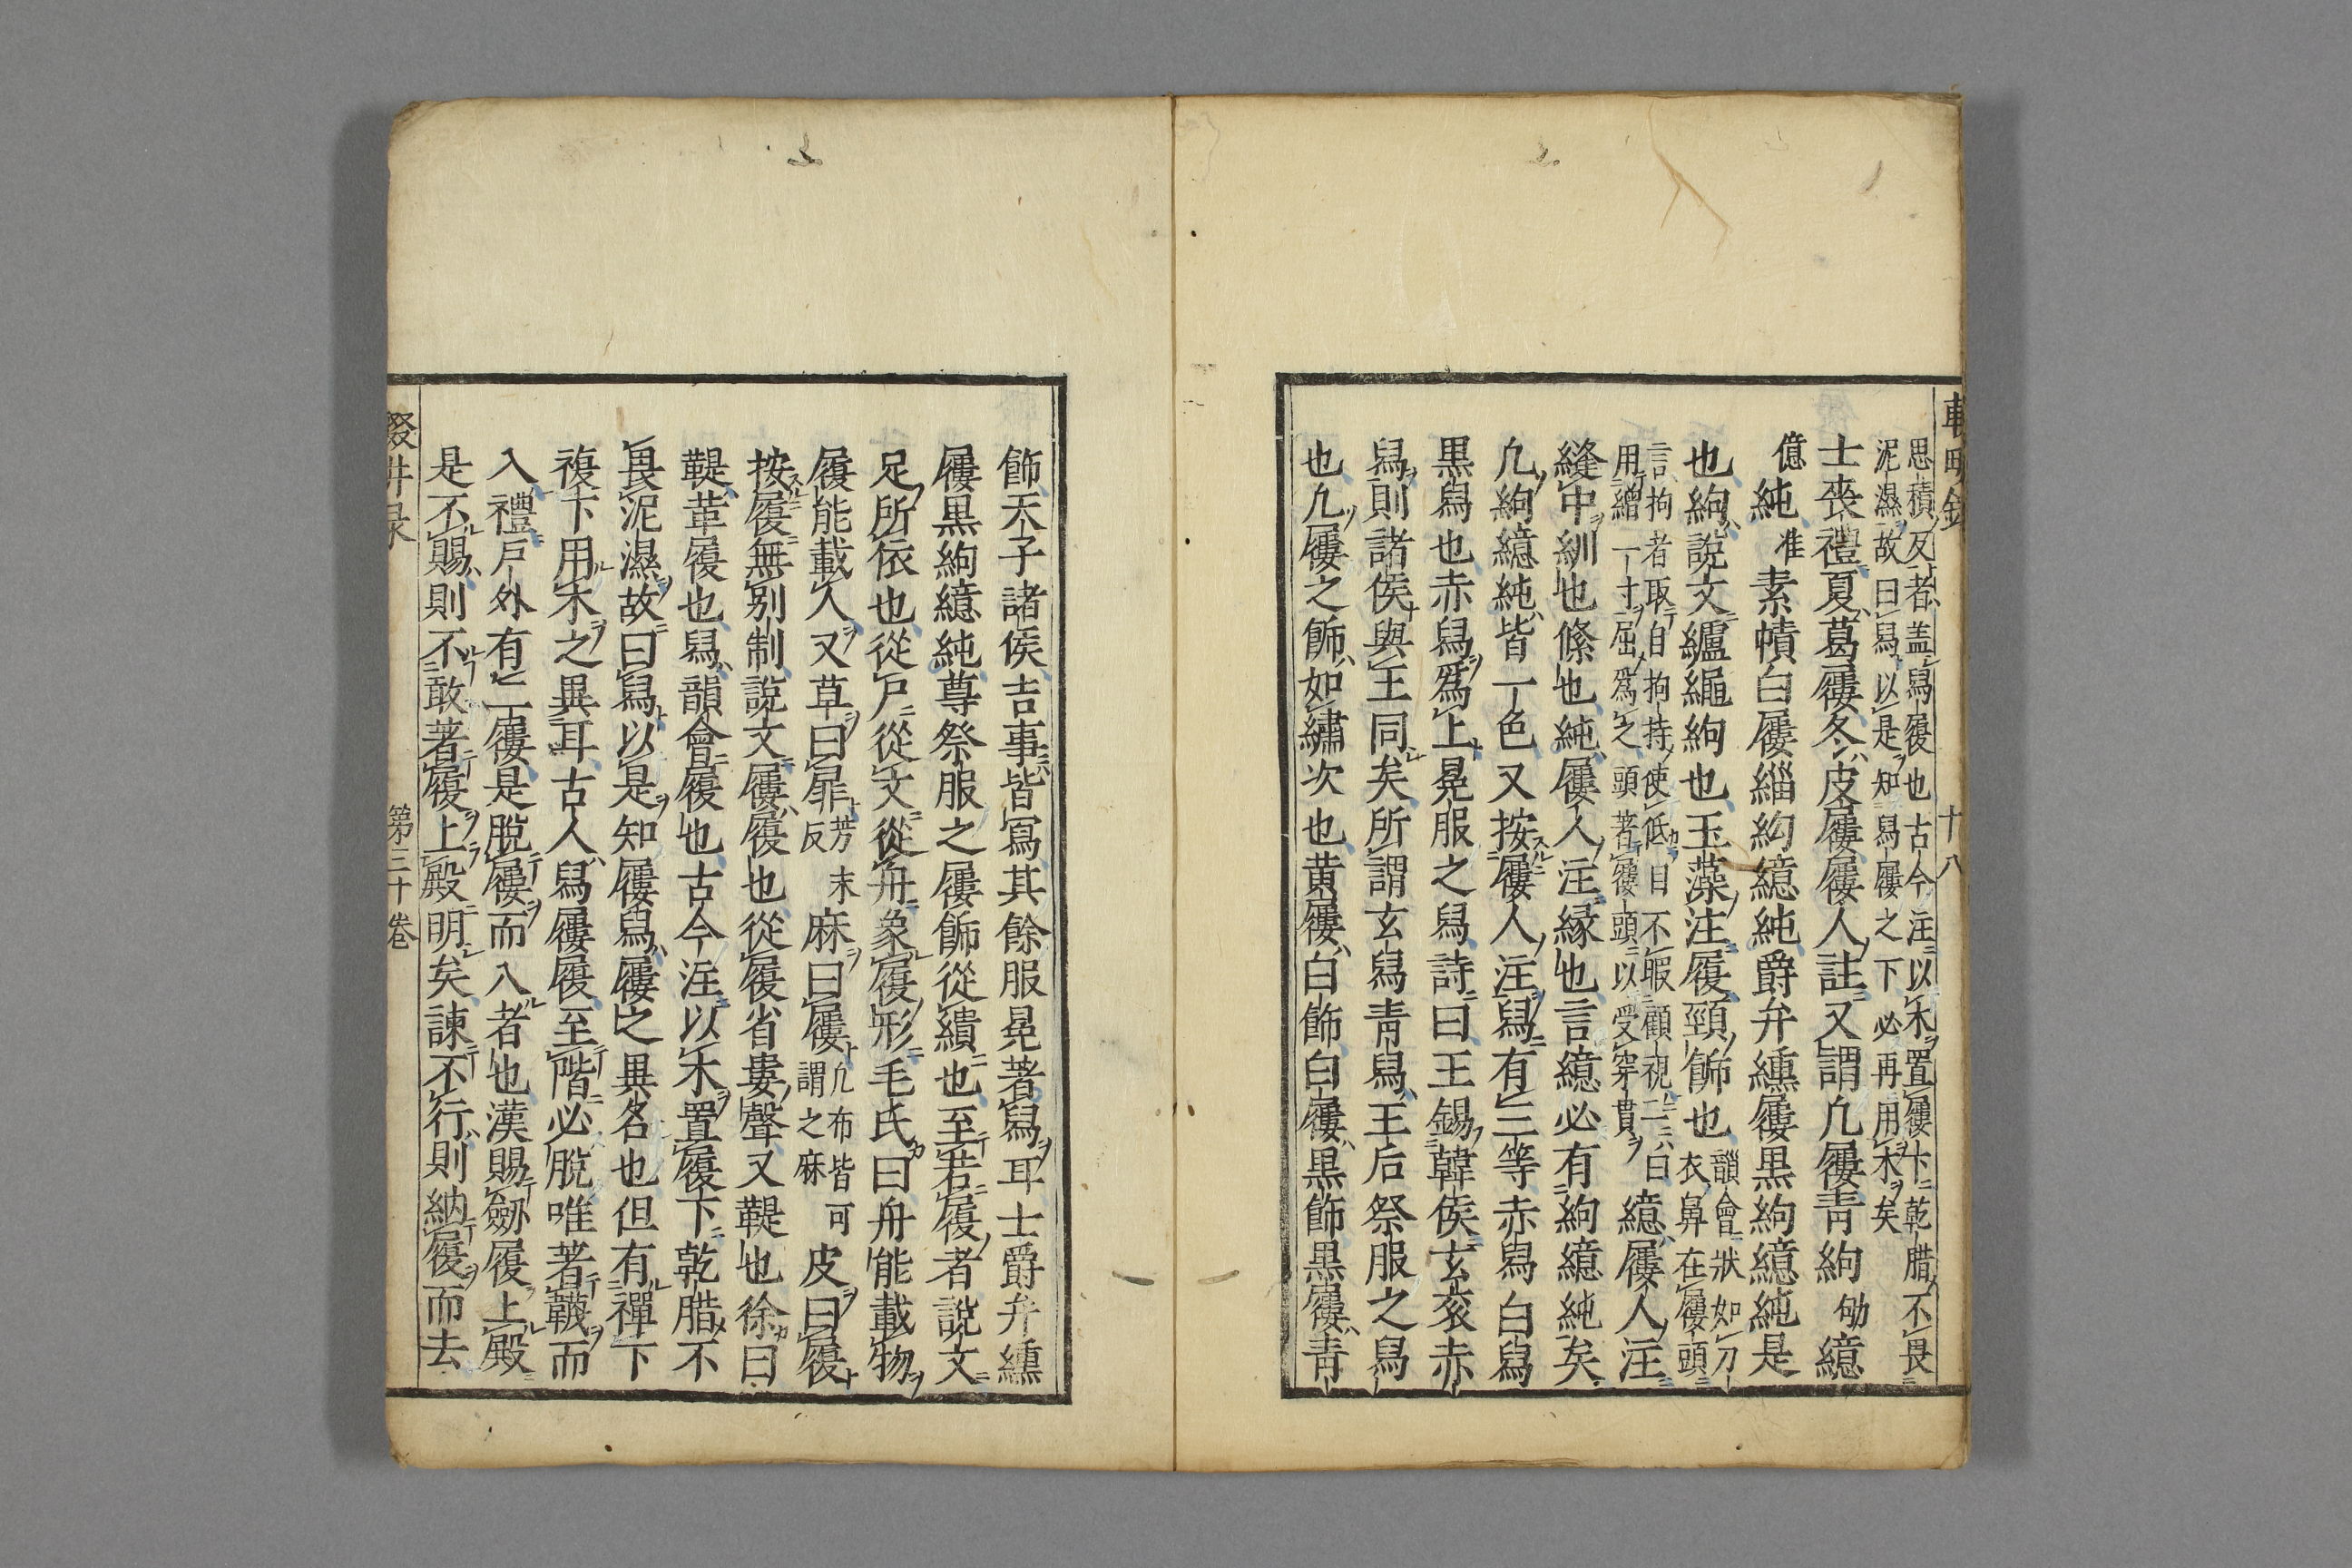 輟畊録 十八
思積反者盖舄履也古今注以木置屨下乾腊不畏
泥濕故曰舄以是知舄屨之下必再用木矣
士喪禮夏葛屨冬皮屨屨人註又謂凢屨靑絇劬繶
億純准素幘白屨緇絇繶純爵弁纁屨黒絇繶純是
也絇說文纑繩絇也玉藻注履頭飾也韻會狀如刀衣鼻在屨頭
言拘者取自拘持使低目不暇顧視一云白
用繒一寸屈爲之頭著屨頭以受穿貫繶屨人注
縫中紃也絛也純屨人注縁也言繶必有絇繶純矣
凢絇繶純皆一色又按屨人注舄有三等赤舄白舄
黒舄也赤舄爲上冕服之舄詩曰王錫韓侯玄衮赤
舄則諸侯與王同矣所謂玄舄靑舄王后祭服之舄
也凢屨之飾如繡次也黄屨白飾白屨黒飾黒屨靑
飾天子諸侯吉事皆舄其餘服冕著舄耳士爵弁纁
屨黒絇繶純尊祭服之屨飾從繢也至若履者說文
足所依也從尸從文從舟象履形毛氏曰舟能載物
履能載人又草曰屝芳末反麻曰屨凢布皆可謂之麻皮曰履
按履無别制說文屨履也從履省婁聲又鞮也徐曰
鞮革履也舄韻會履也古今注以木置履下乾腊不
畏泥濕故曰舄以是知屨舄屨之異名也但有禪下
複下用木之異耳古人舄屨履至階必脫唯著韈而
入禮戸外有二屨是脫屨而入者也漢賜劔履上殿
是不賜則不敢著履上殿明矣諫不行則納履而去
輟畊录 第三十卷